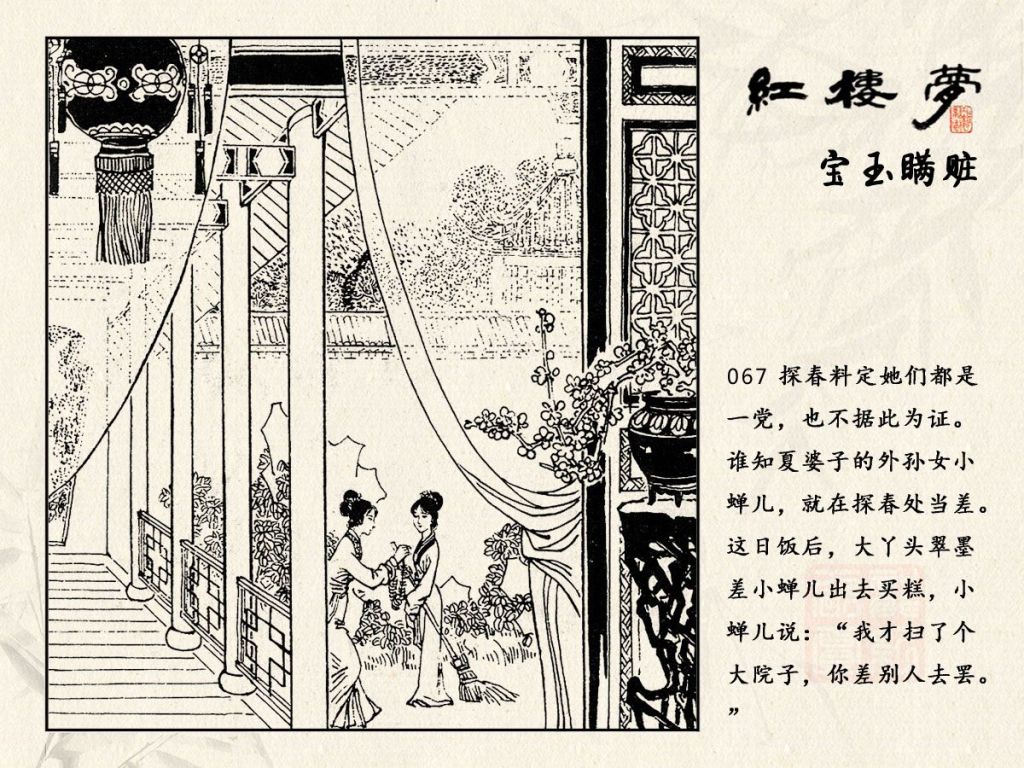 紅樓夢
宝玉瞒赃
067 探春料定她们都是
一党，也不据此为证。
谁知夏婆子的外孙女小
蝉儿，就在探春处当差。
这日饭后，大丫头翠墨
差小蝉儿出去买糕，小
蝉儿说：“我才扫了个
大院子，你差别人去罢。
”